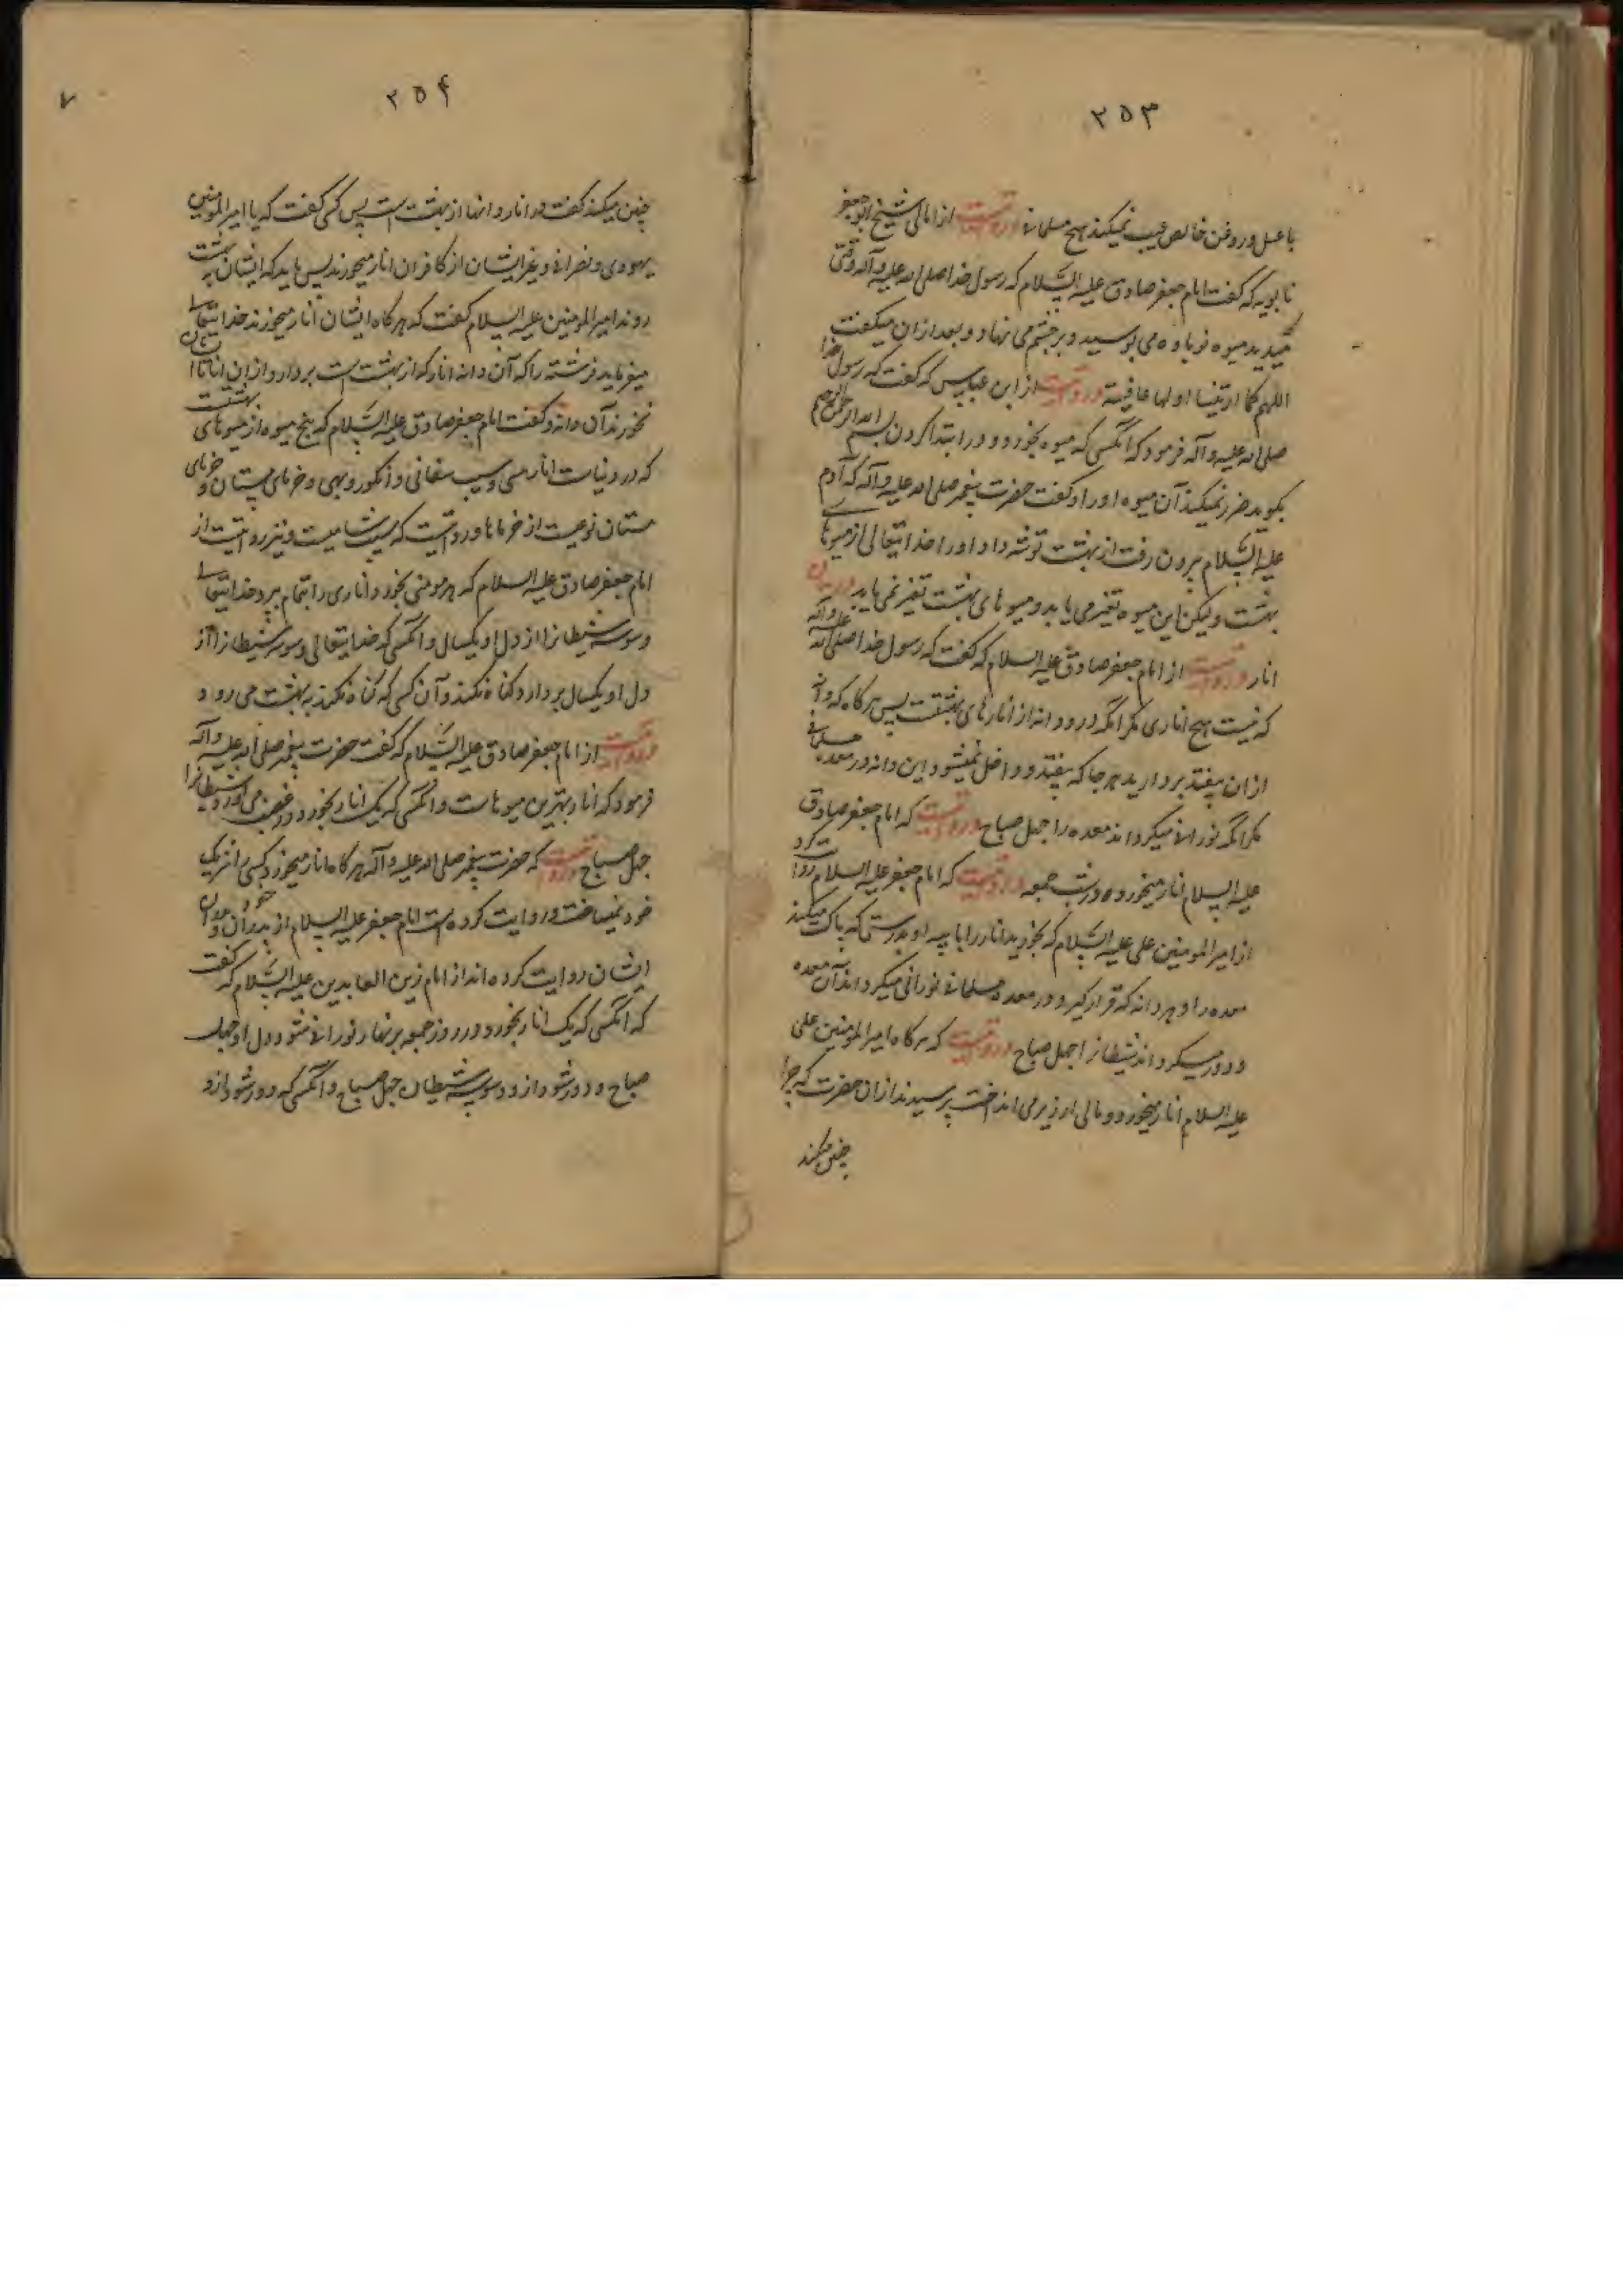 ۲۵۳
با عسل و روغن خالص عیب نمیکند هیچ مسلمانی و روایتست از امالی شیخ ابو جعفر
بابویه که گفت امام جعفر صادق علیه السلام که رسول خدا صلی الله علیه و آله وقتی که
میدید میوه نوباوه می بوسید و بر چشم می نهاد و بعد ازان میگفت
اللهم کما اریتنا اولها عافیته و روایتست از ابن عباس که گفت که رسول خدا
صلی الله علیه و آله فرمود که آنکسی که میوه بخورد و در ابتدا کردن بسم الله الرحمن الرحیم
بگوید ضرر نمیکند آن میوه او را و گفت حضرت پیغمبر صلی الله علیه و آله که آدم
علیه السلام بیرون رفت از بهشت توشه داد او را خدایتعالی از میوهای
بهشت ولیکن این میوه تغیر می یابد و میوهای بهشت تغیر نمی یابد در بیان
انار و روایتست از امام جعفر صادق علیه السلام که گفت که رسول خدا صلی الله علیه و آله
که نیست هیچ اناری مگر انکه درو دانه از انارهای بهشتست پس هرگاه که دانه
ازان بیفتد بردارید هر جا که بیفتد و داخل نمیشود این دانه در معده مسلمانی
مگر انکه نورانی میگرداند معده را چهل صباح و روایتست که امام جعفر صادق
علیه السلام انار میخورد در شب جمعه و روایتست که امام جعفر علیه السلام روایت کرد
از امیر المومنین علی علیه السلام که بخورید انار را با پیه او بدرستی که پاک میکند
معده را و هر دانه که قرار گیرد در معده مسلمانی نورانی میگرداند آن معده
و دور میگرداند شیطانرا چهل صباح و روایتست که هرگاه امیر المومنین علی
علیه السلام انار میخورد دستمالی در زیر می انداخت پرسیدند ازان حضرت که چرا
چنین میکند
۲۵۴
چنین میکند گفت در انار دانها از بهشت است پس کسی گفت که یا امیر المومنین
یهودی و نصرانی و غیر ایشان از کافران انار میخورند پس باید که ایشان به بهشت
روند امیر المومنین علیه السلام گفت که هرگاه ایشان انار میخورند خدایتعالی
میفرماید فرشته را که آن دانه انار که از بهشت است بردارد ازان انار تا ایشان
نخورند آن دانه و گفت امام جعفر صادق علیه السلام که پنج میوه از میوهای بهشتست
که در دنیاست انار ملسی و سیب سفانی و انگور و بهی و خرمای مستان و خرمای
مستان نوعیست از خرماها و روایتست که سیب شامیست و نیز روایتست از
امام جعفر صادق علیه السلام که هر مومنی بخورد اناری را بتمام ببرد خدایتعالی
وسوسه شیطانرا از دل او یکسال و آنکسی که خدایتعالی وسوسه شیطانرا از
دل او یکسال بردارد گناه نکند و آن کسی که گناه نکند به بهشت می رود
و روایتست از امام جعفر صادق علیه السلام که گفت حضرت پیغمبر صلی الله علیه و آله
فرمود که انار بهترین میوهاست و آنکسی که یک انار بخورد در غضب می آورد شیطانرا
چهل صباح و روایتست که حضرت پیغمبر صلی الله علیه و آله هرگاه انار میخورد کسی را شریک
خود نمیساخت و روایت کرده است امام جعفر علیه السلام از پدران خود و
ایشان روایت کرده اند از امام زین العابدین علیه السلام که گفت
که آنکسی که یک انار بخورد در روز جمعه بر نهار نورانی شود دل او چهل
صباح و دور شود ازو وسوسه شیطان چهل صباح و آنکسی که دور شود ازو